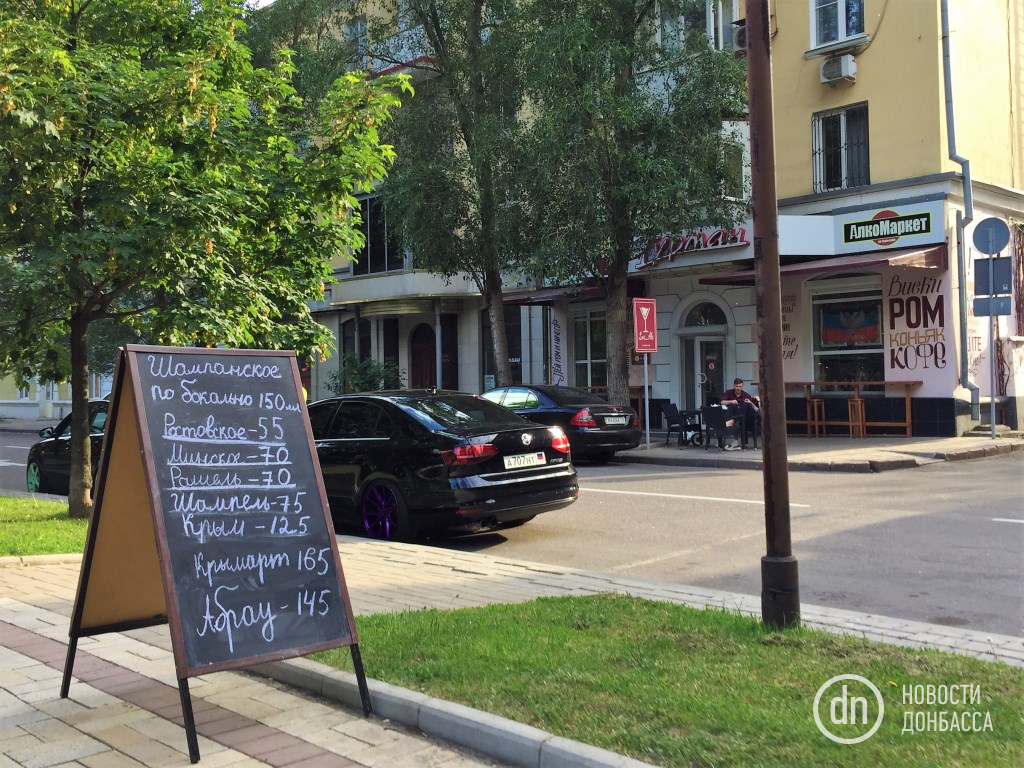 Шампанское
по бокально 150мл
Ростовское-55
Минское-70
Рашель-70
Шампель-75
Крым-125
Крымарт 165
Абрау-145
АлкоМаркет
Виски
РОМ
КОНЬЯК
КОФЕ
А707НТ
dn НОВОСТИ
ДОНБАССА